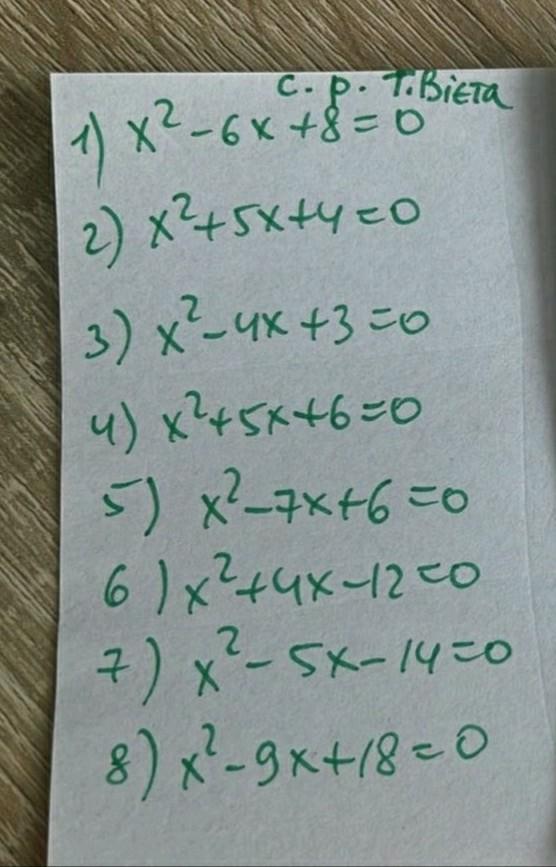 с. р. Т.Вієта
1) x²-6x+8=0
2) x²+5x+4=0
3) x²-4x+3=0
4) x²+5x+6=0
5) x²-7x+6=0
6) x²+4x-12=0
7) x²-5x-14=0
8) x²-9x+18=0